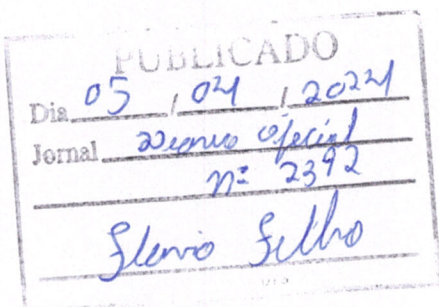 PUBLICADO
Dia 05 / 04 / 2024
Jornal Diario Oficial
nº 2392
Flavio Filho